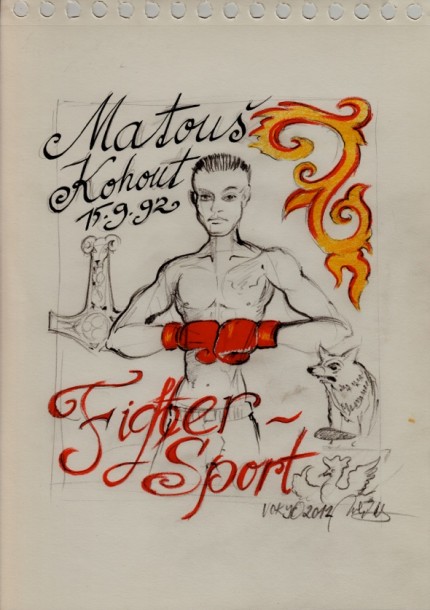 Matouš
Kohout
15.9.92
Fighter-
Sport
2012